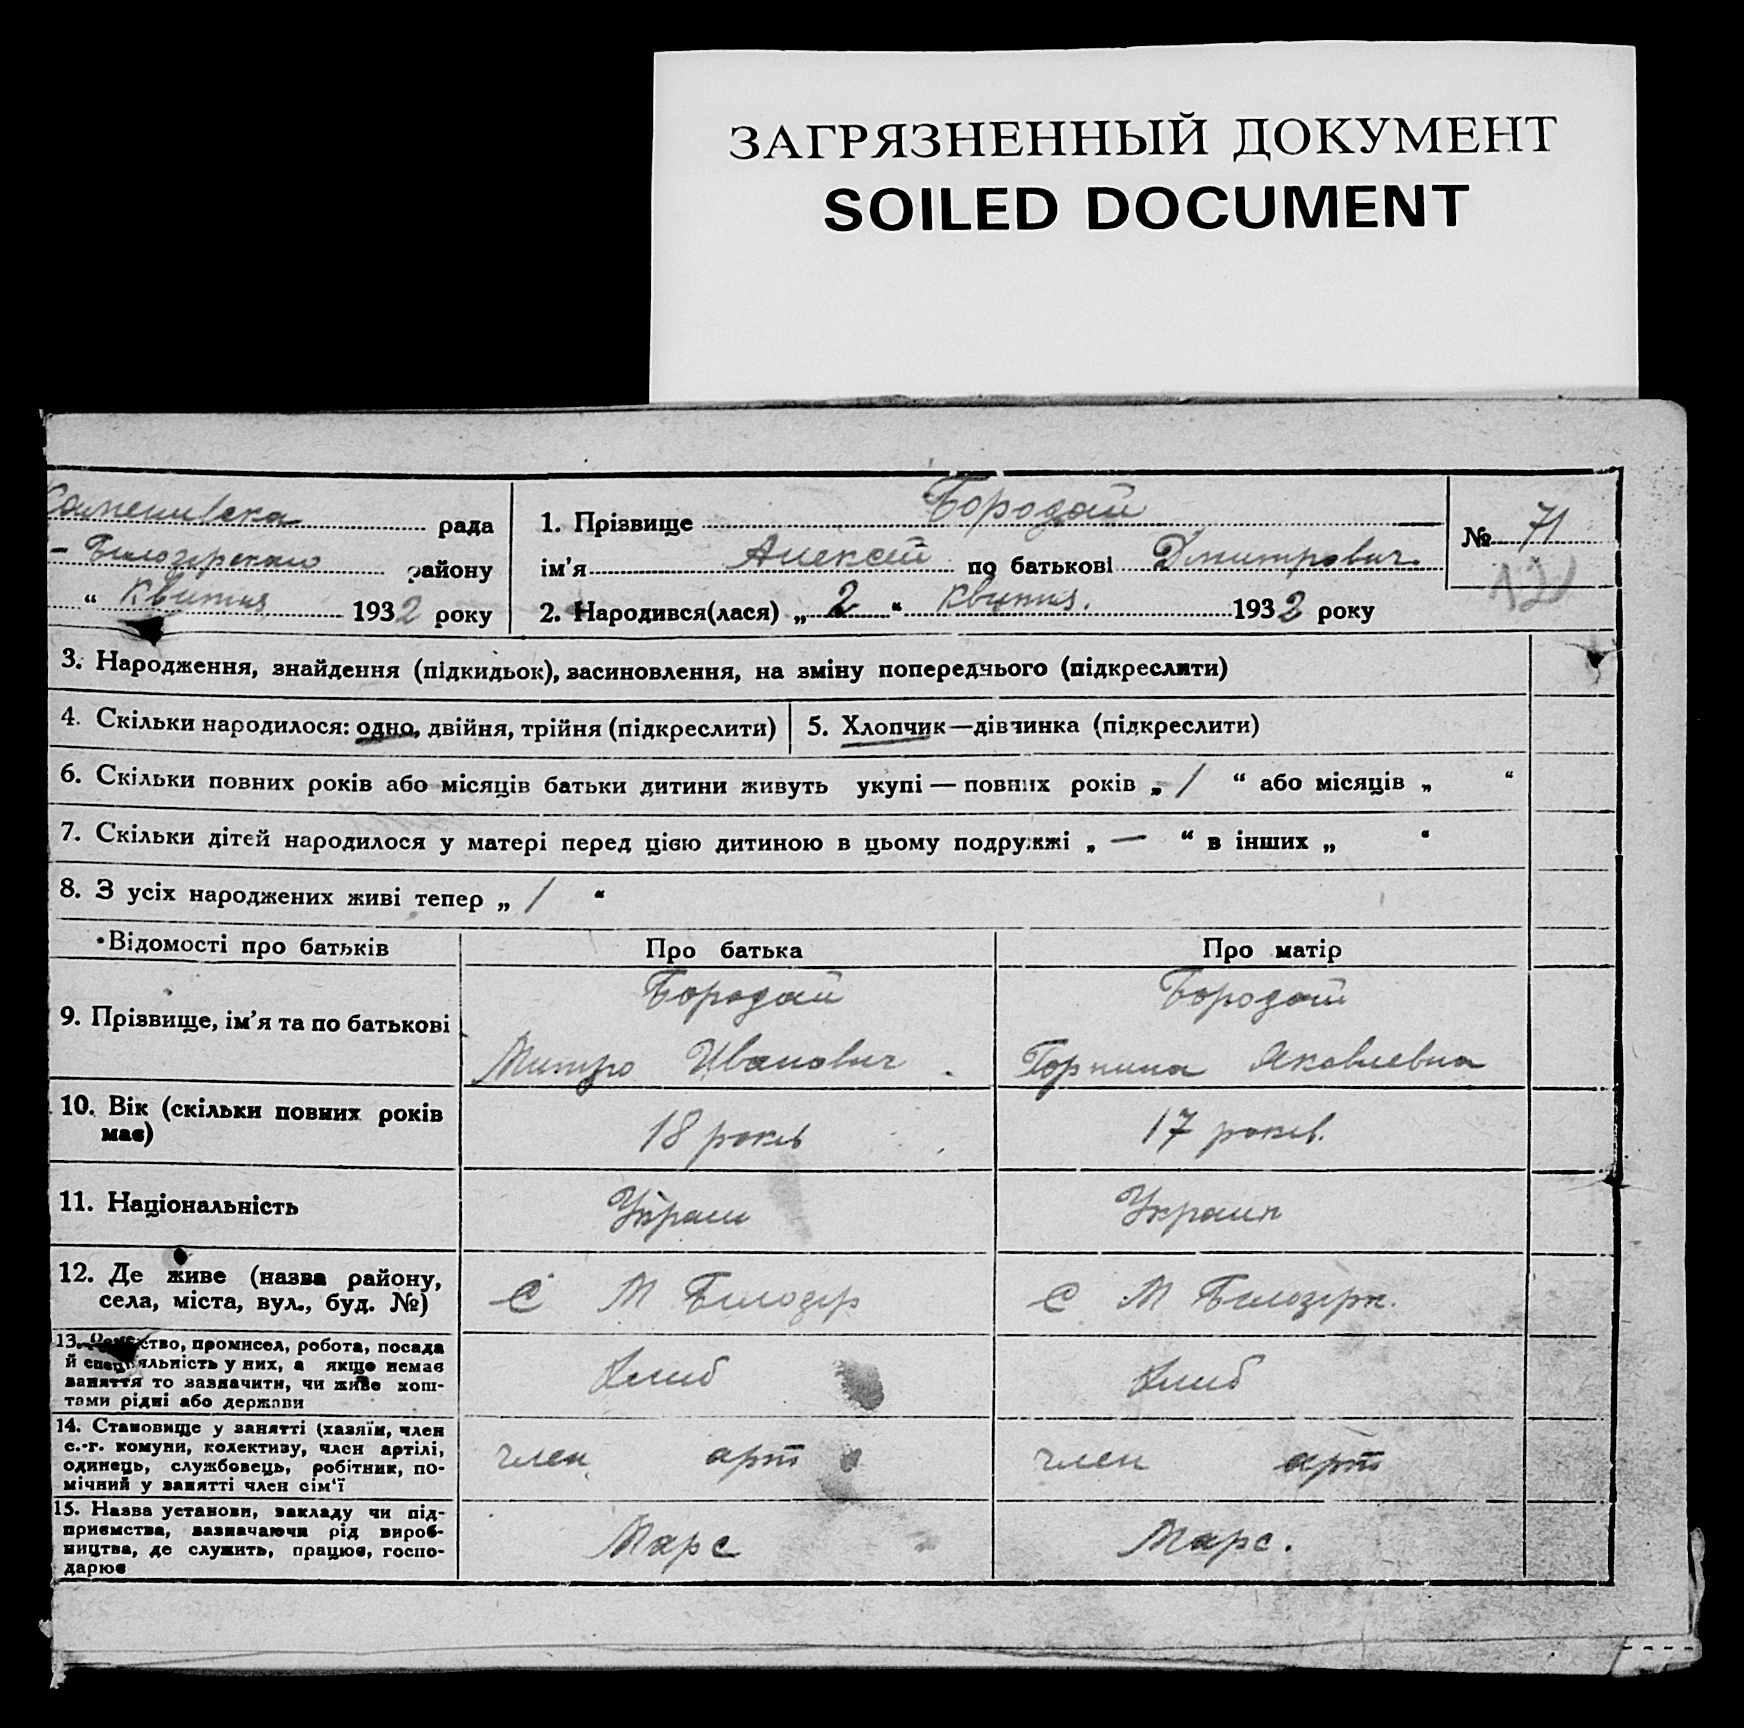 ЗАГРЯЗНЕННЫЙ ДОКУМЕНТ
SOILED DOCUMENT
рада
району
“ Квитня 1932 року
1. Прізвище Бородай
ім’я Алексей по батькові Дмитрович.
2. Народився(лася) „ 2 “ квитня. 1932 року
№ 71
3. Народження, знайдення (підкидьок), засиновлення, на зміну попереднього (підкреслити)
4. Скільки народилося: одно, двійня, трійня (підкреслити)
5. Хлопчик—дівчинка (підкреслити)
6. Скільки повних років або місяців батьки дитини живуть укупі — повних років „ / “ або місяців „ “
7. Скільки дітей народилося у матері перед цією дитиною в цьому подружжі „ — “ в інших „ “
8. З усіх народжених живі тепер „ / “
Відомості про батьків
Про батька
Про матір
9. Прізвище, ім’я та по батькові
Бородай
Митро Иванович.
Бородай
Горпина Яковлевна
10. Вік (скільки повних років
має)
18 років
17 років.
11. Національність
Украин
Украин
12. Де живе (назва району,
села, міста, вул., буд. №)
С М Билозер
С М Билозерк.
13. ство, промисел, робота, посада
й спеціяльність у них, а якщо немає
заняття то зазначити, чи живе кош-
тами рідні або держави
Хлиб
Хлиб
14. Становище у занятті (хазяїн, член
с.-г. комуни, колективу, член артілі,
одинець, службовець, робітник, по-
мічний у занятті член сім‘ї
член арт
член арт
15. Назва установи, закладу чи під-
приємства, зазначаючи рід вироб-
ництва, де служить, працює, госпо-
дарює
Марс
Марс.